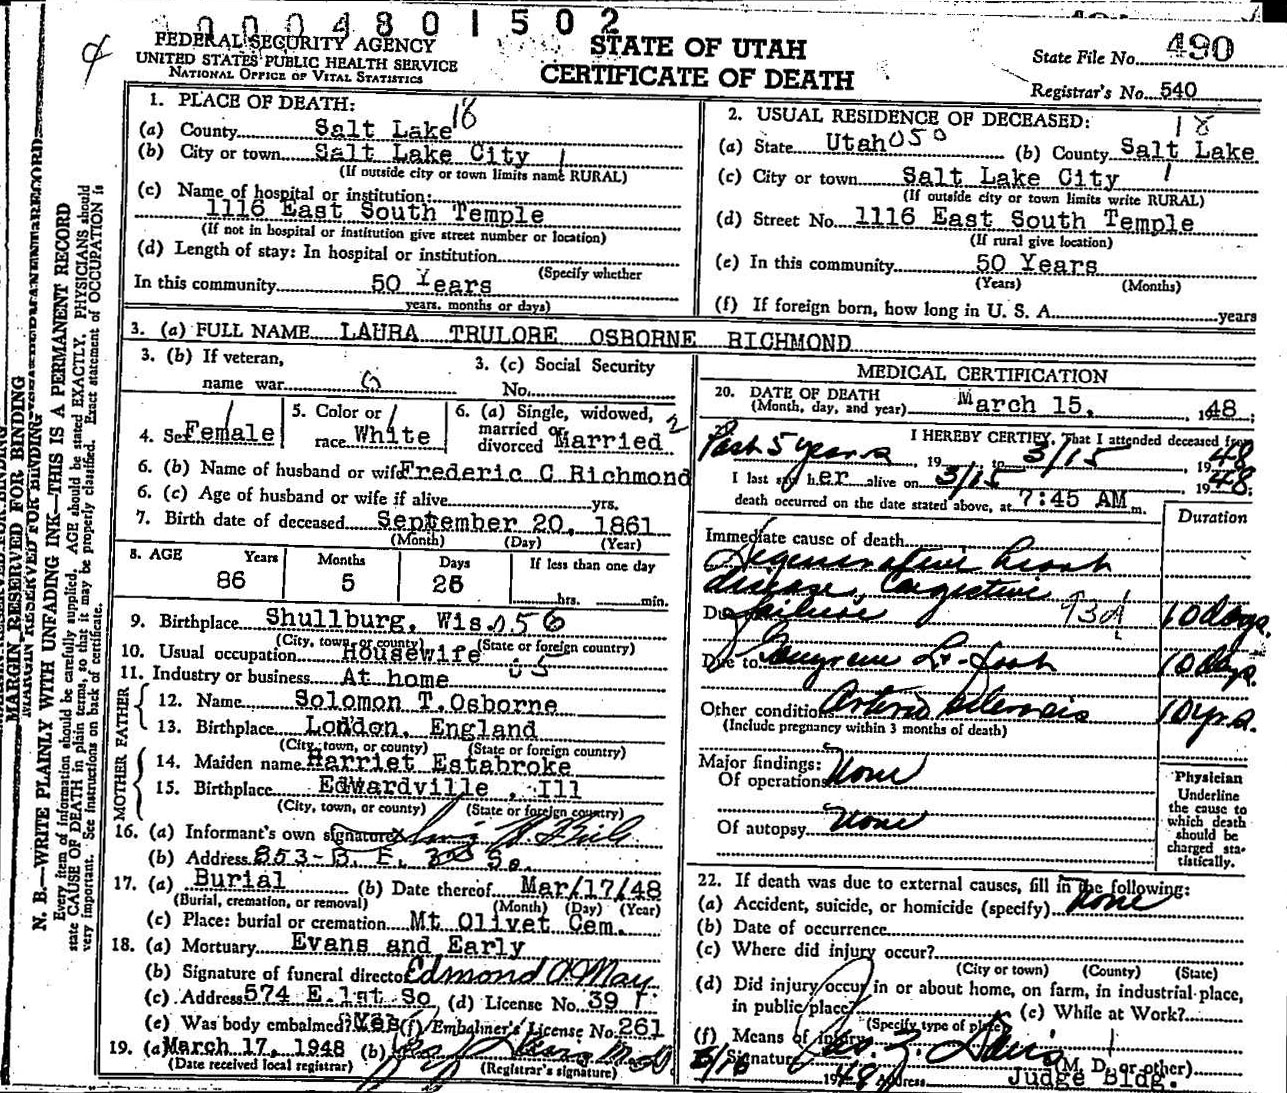 0004801502
FEDERAL SECURITY AGENCY
UNITED STATES PUBLIC HEALTH SERVICE
NATIONAL OFFICE OF VITAL STATISTICS
STATE OF UTAH
CERTIFICATE OF DEATH
State File No. 490
Registrar's No. 540
MARGIN RESERVED FOR BINDING
N. B.—WRITE PLAINLY WITH UNFADING INK—THIS IS A PERMANENT RECORD
Every item of information should be carefully supplied. AGE should be stated EXACTLY. PHYSICIANS should
state CAUSE OF DEATH in plain terms, so that it may be properly classified. Exact statement of OCCUPATION is
very important. See instructions on back of certificate.
1. PLACE OF DEATH:
(a) County Salt Lake 18
(b) City or town Salt Lake City 1
(If outside city or town limits name RURAL)
(c) Name of hospital or institution:
1116 East South Temple
(If not in hospital or institution give street number or location)
(d) Length of stay: In hospital or institution
(Specify whether
In this community 50 Years
years, months or days)
2. USUAL RESIDENCE OF DECEASED: 18
(a) State Utah 050 (b) County Salt Lake
(c) City or town Salt Lake City 1
(If outside city or town limits write RURAL)
(d) Street No. 1116 East South Temple
(If rural give location)
(e) In this community 50 Years
(Years) (Months)
(f) If foreign born, how long in U. S. A. years
3. (a) FULL NAME LAURA TRULORE OSBORNE RICHMOND
3. (b) If veteran,
name war
3. (c) Social Security
No.
4. Sex Female
5. Color or
race White
6. (a) Single, widowed,
married or
divorced Married 2
6. (b) Name of husband or wife Frederic C Richmond
6. (c) Age of husband or wife if alive yrs.
7. Birth date of deceased September 20, 1861
(Month) (Day) (Year)
8. AGE Years Months Days If less than one day
86 5 26 hrs. min.
9. Birthplace Shullburg, Wis 056
(City, town, or county) (State or foreign country)
10. Usual occupation Housewife
11. Industry or business At home
FATHER
12. Name Solomon T. Osborne
13. Birthplace London, England
(City, town, or county) (State or foreign country)
MOTHER
14. Maiden name Harriet Estabroke
15. Birthplace Edwardville, Ill
(City, town, or county) (State or foreign country)
16. (a) Informant's own signature
(b) Address 853 - B. E. So.
17. (a) Burial (b) Date thereof Mar/17/48
(Burial, cremation, or removal) (Month) (Day) (Year)
(c) Place: burial or cremation Mt Olivet Cem.
18. (a) Mortuary Evans and Early
(b) Signature of funeral director Edmond O May
(c) Address 574 E. 1st So (d) License No. 39
(e) Was body embalmed? Yes (f) Embalmer's License No. 261
19. (a) March 17, 1948 (b)
(Date received local registrar) (Registrar's signature)
MEDICAL CERTIFICATION
20. DATE OF DEATH
(Month, day, and year) March 15, 1948;
I HEREBY CERTIFY, That I attended deceased from
Past 5 years, 19 to 3/15, 1948
I last saw her alive on 3/15, 1948;
death occurred on the date stated above, at 7:45 AM m.
Duration
Immediate cause of death
Degenerative heart
disease, Congestive
Due failure 93d 10 days.
Due to Gangrene Lt - foot 10 days.
Other conditions Arterio sclerosis 10 yrs.
(Include pregnancy within 3 months of death)
Major findings:
Of operations None
Of autopsy None
Physician
Underline
the cause to
which death
should be
charged sta-
tistically.
22. If death was due to external causes, fill in the following:
(a) Accident, suicide, or homicide (specify) None
(b) Date of occurrence
(c) Where did injury occur?
(City or town) (County) (State)
(d) Did injury occur in or about home, on farm, in industrial place,
in public place? (e) While at Work?
(Specify type of place)
(f) Means of injury
Signature
(M. D. or other)
1948 Address Judge Bldg.